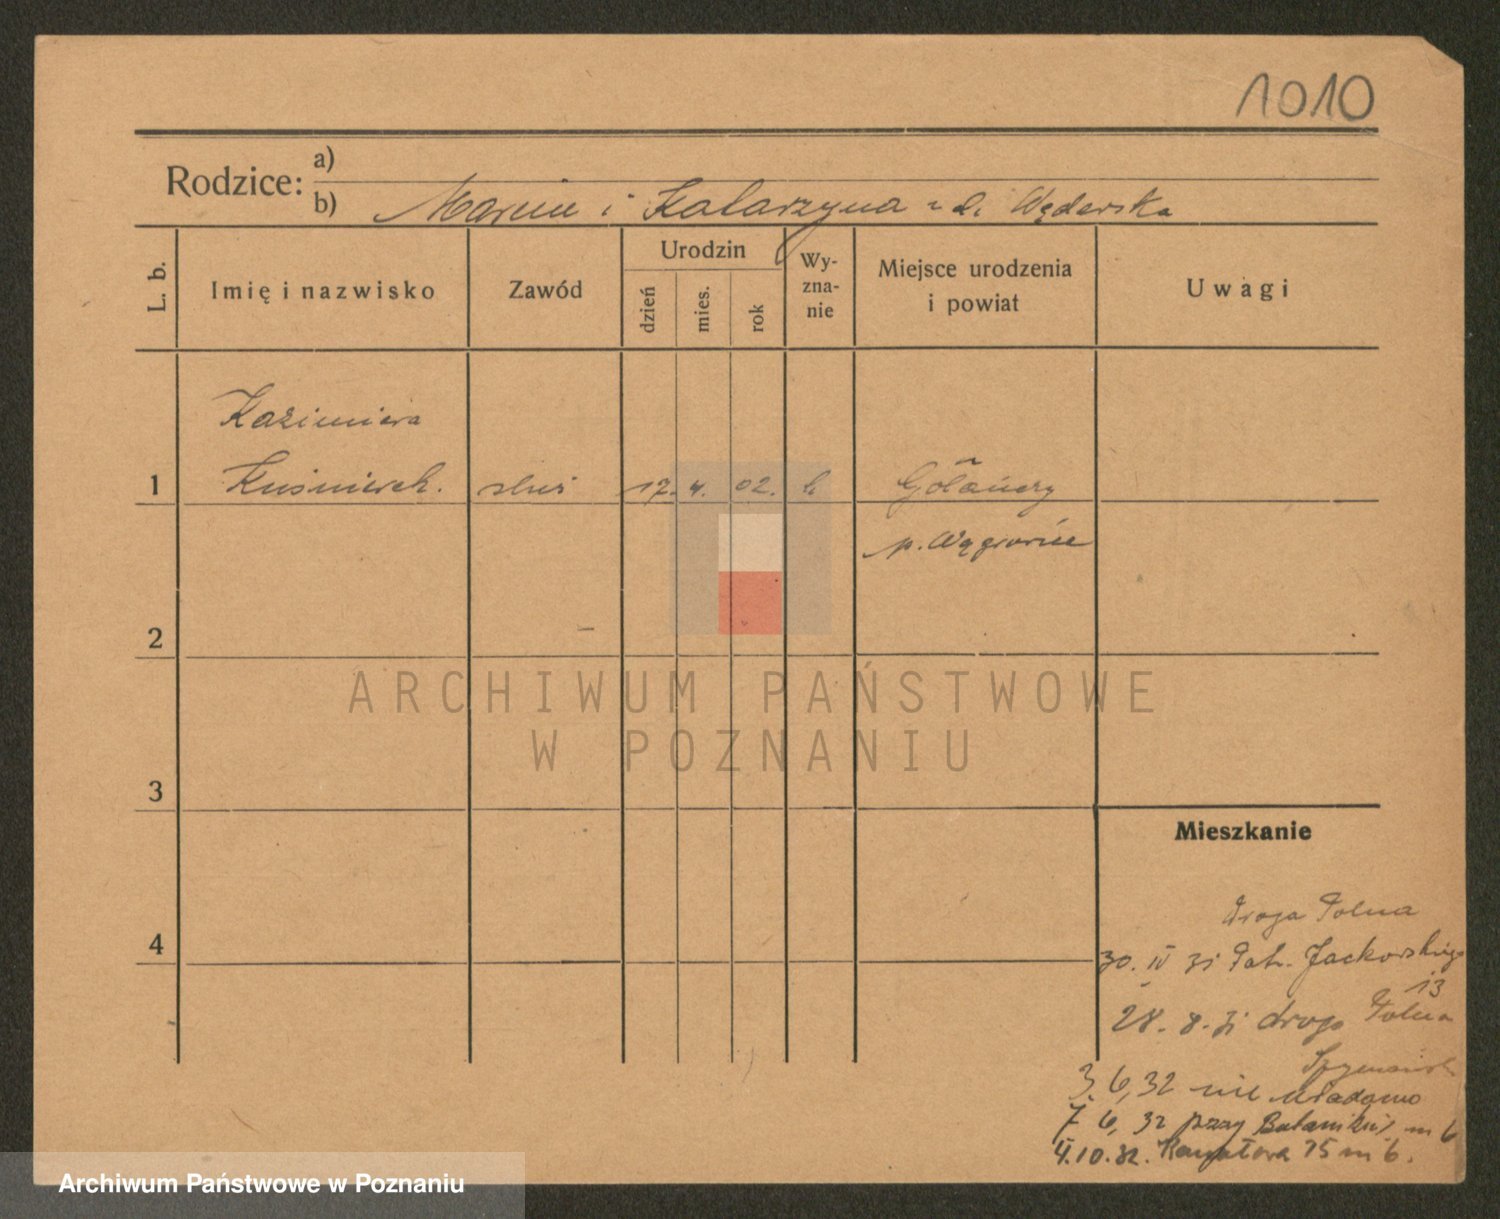 1010
Rodzice: a)
b) Marcin i Katarzyna z d. Węderska
L. b.
Imię i nazwisko
Zawód
Urodzin
dzień
mies.
rok
Wy-
zna-
nie
Miejsce urodzenia
i powiat
Uwagi
Kazimiera
1 Kuśnierek. 17. 4. 02. k Gołańczy
p. Wągrowiec
2
3
4
Mieszkanie
droga Polna
30. IV 31 Jackowskiego
13
28. 8. 31 droga Polna
3. 6, 32 nie wiadomo
7 6, 32 przy m 6
4.10.32. 15 m 6.
ARCHIWUM PAŃSTWOWE
W POZNANIU
Archiwum Państwowe w Poznaniu